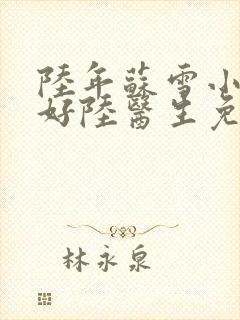 陸年蘇雪小
好陸醫生免
林永泉